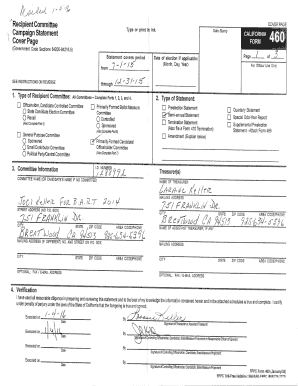 Recipient Committee
Campaign Statement
Cover Page
(Government Code Sections 84200-84216.5)
Type or print in ink.
COVER PAGE
Date Stamp
CALIFORNIA
FORM 460
Statement covers period
from 7-1-15
through 12-31-15
Date of election if applicable:
(Month, Day, Year)
Page 1 of 3
For Official Use Only
SEE INSTRUCTIONS ON REVERSE
1. Type of Recipient Committee: All Committees – Complete Parts 1, 2, 3, and 4.
Officeholder, Candidate Controlled Committee
State Candidate Election Committee
Recall
(Also Complete Part 5)
General Purpose Committee
Sponsored
Small Contributor Committee
Political Party/Central Committee
Primarily Formed Ballot Measure
Committee
Controlled
Sponsored
(Also Complete Part 6)
Primarily Formed Candidate/
Officeholder Committee
(Also Complete Part 7)
2. Type of Statement:
Preelection Statement
Semi-annual Statement
Termination Statement
(Also file a Form 410 Termination)
Amendment (Explain below)
Quarterly Statement
Special Odd-Year Report
Supplemental Preelection
Statement - Attach Form 495
3. Committee Information
I.D. NUMBER
COMMITTEE NAME (OR CANDIDATE'S NAME IF NO COMMITTEE)
Joel Keller For BART 2014
STREET ADDRESS (NO P.O. BOX)
751 FRANKLIN DR
CITY STATE ZIP CODE AREA CODE/PHONE
BRENTWOOD CA 94513
MAILING ADDRESS (IF DIFFERENT) NO. AND STREET OR P.O. BOX
CITY STATE ZIP CODE AREA CODE/PHONE
OPTIONAL: FAX / E-MAIL ADDRESS
Treasurer(s)
NAME OF TREASURER
Keller
MAILING ADDRESS
751 FRANKLIN DR
CITY STATE ZIP CODE AREA CODE/PHONE
BRENTWOOD CA 94513
NAME OF ASSISTANT TREASURER, IF ANY
MAILING ADDRESS
CITY STATE ZIP CODE AREA CODE/PHONE
OPTIONAL: FAX / E-MAIL ADDRESS
4. Verification
I have used all reasonable diligence in preparing and reviewing this statement and to the best of my knowledge the information contained herein and in the attached schedules is true and complete. I certify
under penalty of perjury under the laws of the State of California that the foregoing is true and correct.
Executed on 1-4-16
By
Date
Executed on
By
Date
Executed on
By
Date
Executed on
By
Date